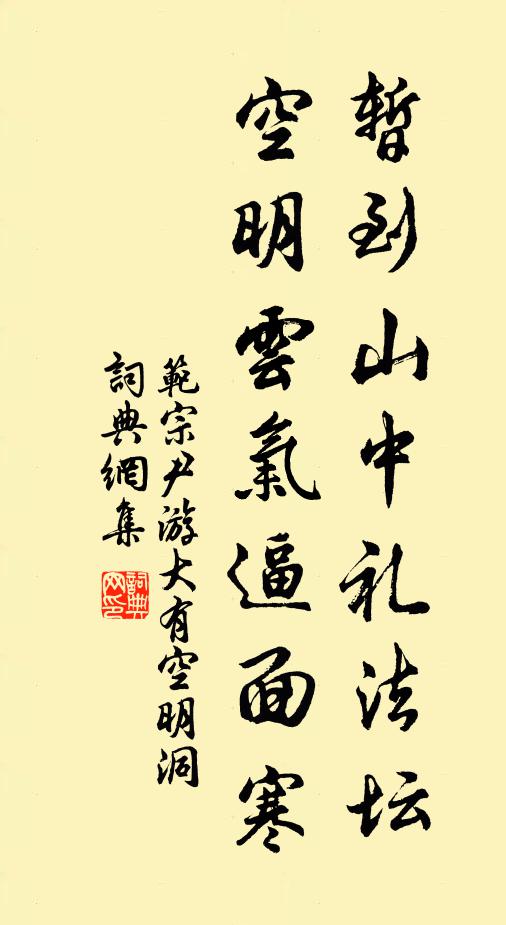 暫到山中礼法坛
空明雲氣逼面寒
範宗尹游大有空明洞
詞典網集
詞典网印